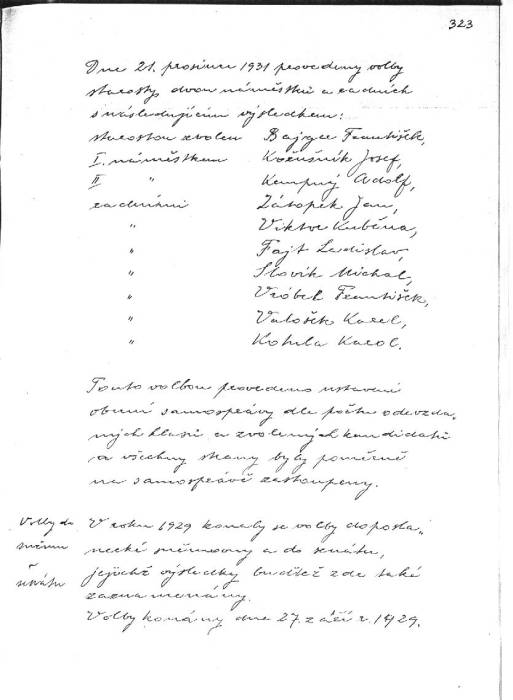 323
Dne 21. prosince 1931 provedeny volby
starosty, dvou náměstků a radních
s následujícím výsledkem:
starostou zvolen Bajger František,
I. náměstkem Kočušník Josef,
II " Kempný Adolf,
radními Zátopek Jan,
" Viktor Kuběna,
" Fajt Ladislav,
" Slovík Michal,
" Vróbel František,
" Valošek Karel,
" Kohula Karol.
Touto volbou provedeno ustavení
obecní samosprávy dle počtu odevzda-
ných hlasů a zvolených kandidátů
a všechny strany byly poměrně
na samosprávě zastoupeny.
Volby do
sněmu
a
senátu
V roku 1929 konaly se volby do posla-
necké sněmovny a do senátu,
jejichž výsledky buďtež zde také
zaznamenány.
Volby konány dne 27. září r. 1929.